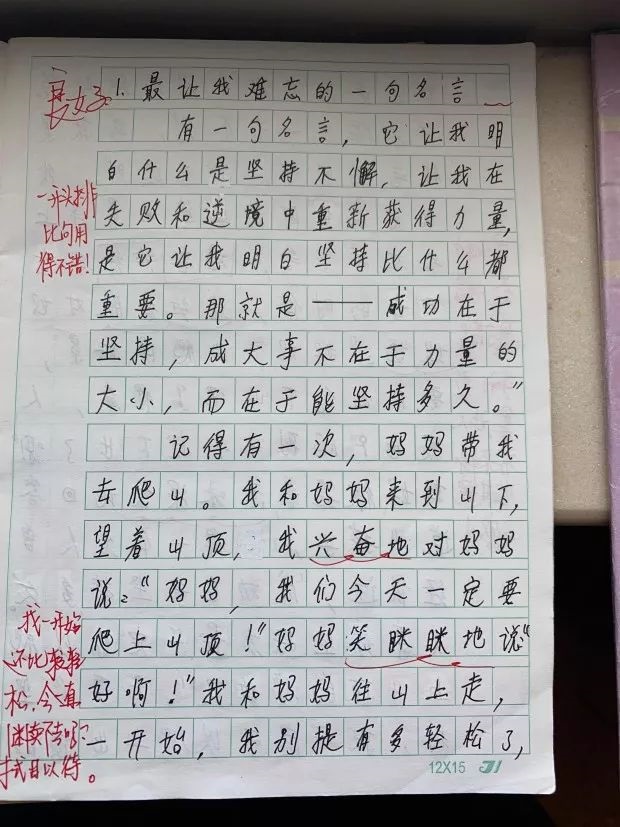 1. 最让我难忘的一句名言
有一句名言，它让我明
白什么是坚持不懈，让我在
失败和逆境中重新获得力量，
是它让我明白坚持比什么都
重要。那就是——成功在于
坚持，成大事不在于力量的
大小，而在于能坚持多久。”
记得有一次，妈妈带我
去爬山。我和妈妈来到山下，
望着山顶，我兴奋地对妈妈
说：“妈妈，我们今天一定要
爬上山顶！”妈妈笑眯眯地说“
好啊！”我和妈妈往山上走，
一开始，我别提有多轻松了，
一开头排
比句用
得不错！
我一开始
还比较轻
松，今真
继续下去吗？
拭目以待。
12X15